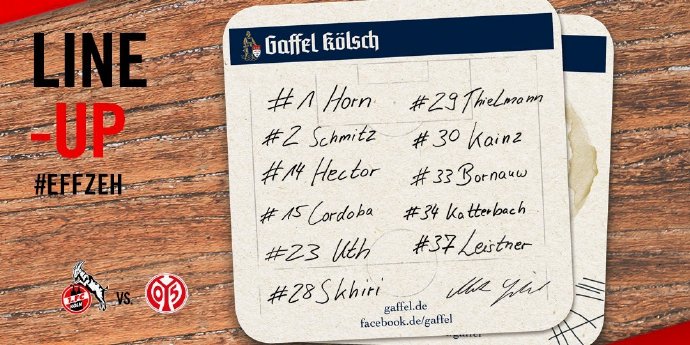 LINE
-UP
#EFFZEH
1.FC
KÖLN
VS.
05
Gaffel Kölsch
#1 Horn
#2 Schmitz
#14 Hector
#15 Cordoba
#23 Uth
#28 Skhiri
#29 Thielmann
#30 Kainz
#33 Bornauw
#34 Katterbach
#37 Leistner
gaffel.de
facebook.de/gaffel